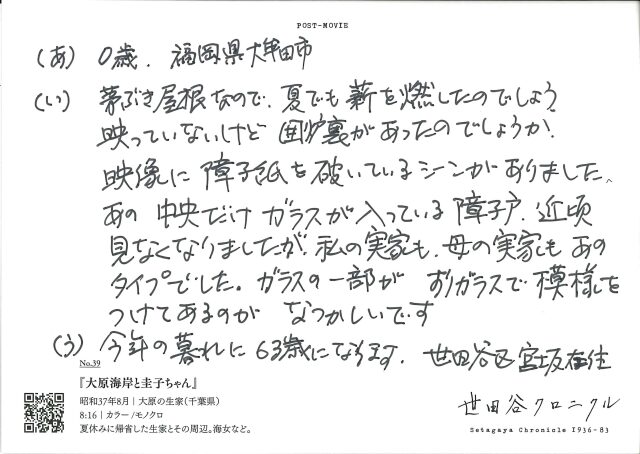 POST-MOVIE
(あ) 0歳. 福岡県大牟田市
(い) 茅ぶき屋根なので、夏でも薪を燃したのでしょう
映っていないけど 囲炉裏があったのでしょうか.
映像に 障子紙を破いているシーンがありました、
あの 中央だけ ガラスが入っている 障子戸. 近頃
見なくなりましたが. 私の実家も. 母の実家も あの
タイプでした。ガラスの一部が すりガラスで 模様を
つけてあるのが なつかしいです
(う) 今年の暮れに 63歳になります. 世田谷区宮坂在住
No.39
『大原海岸と圭子ちゃん』
昭和37年8月|大原の生家(千葉県)
8:16|カラー/モノクロ
夏休みに帰省した生家とその周辺。海女など。
世田谷クロニクル
Setagaya Chronicle 1936-83